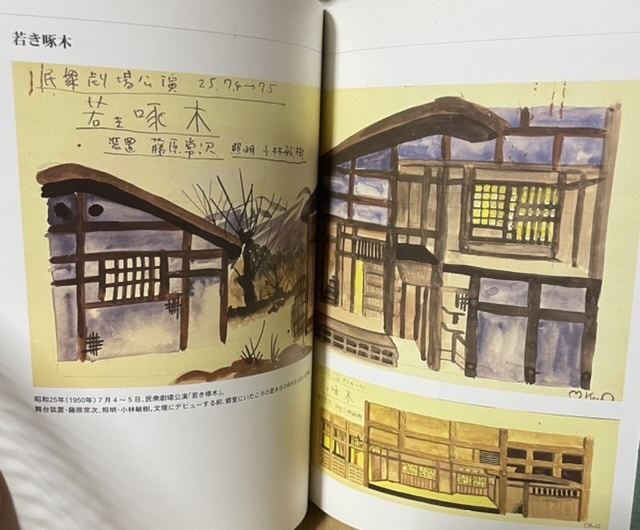 若き啄木
民衆劇場公演 25.7.4→7.5
若き啄木
装置 藤原常次 照明 小林敏樹
昭和25年(1950年)7月4〜5日、民衆劇場公演「若き啄木」。
舞台装置・藤原常次、照明・小林敏樹。文壇にデビューする前、郷里にいたころの若き日の
啄木